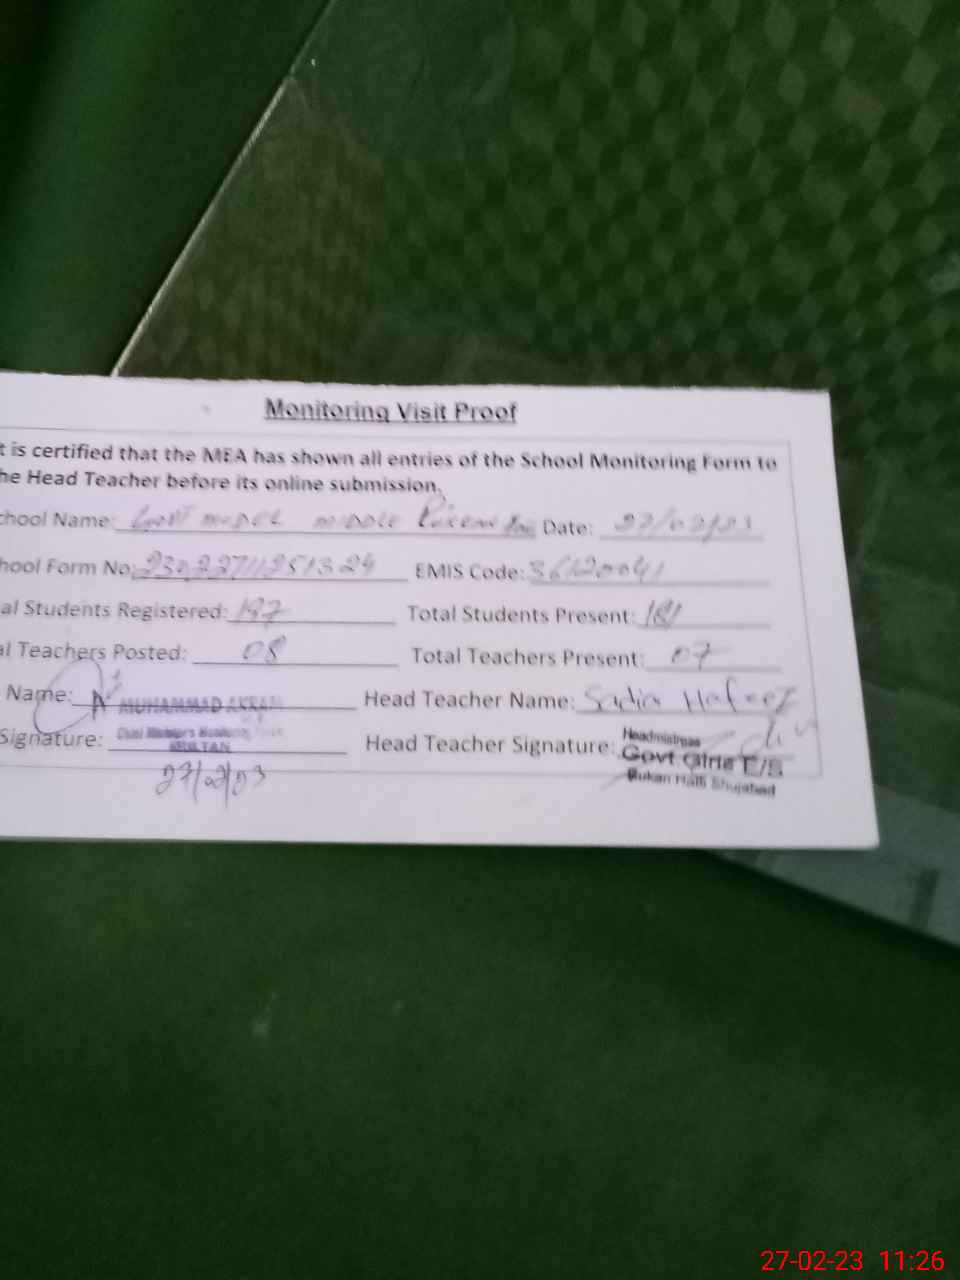 Monitoring Visit Proof
t is certified that the MEA has shown all entries of the School Monitoring Form to
he Head Teacher before its online submission.
chool Name: Govt model middle Date:
hool Form No: EMIS Code: 36120041
al Students Registered: 187 Total Students Present: 181
al Teachers Posted: 08 Total Teachers Present: 07
Name: MUHAMMAD AKRAM Head Teacher Name: Sadia Hafeez
Signature: MULTAN Head Teacher Signature: Headmistress
Govt. Girls E/S
Shujabad
27/02/03
27-02-23 11:26